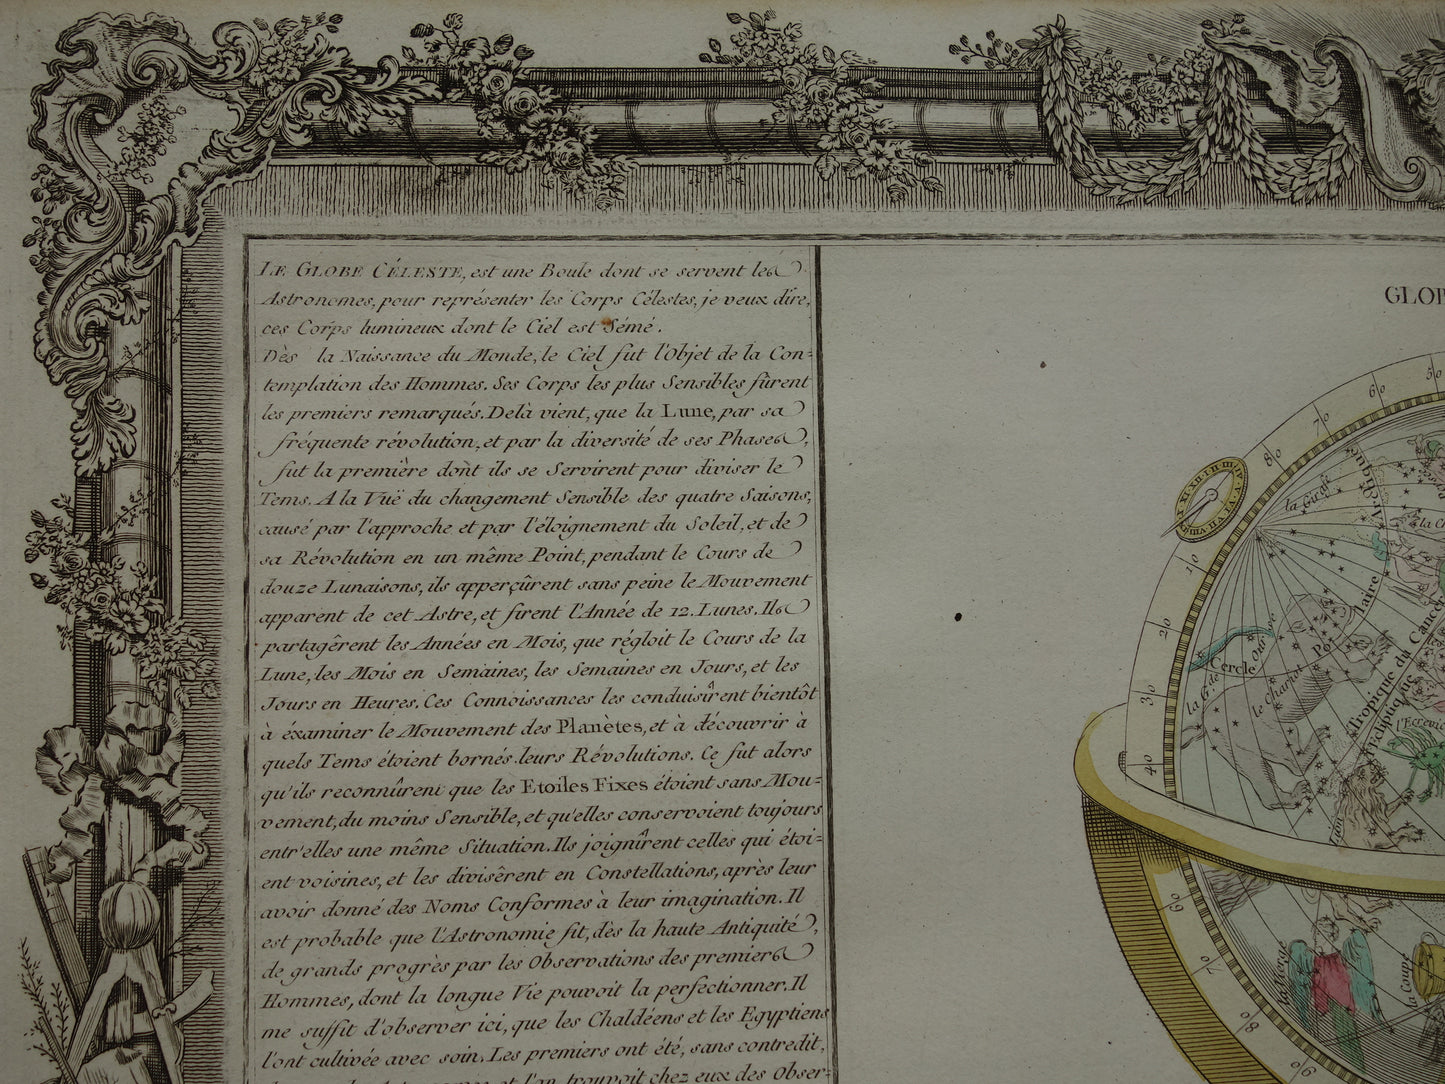 LE GLOBE CÉLESTE, est une Boule dont se servent les
Astronomes, pour représenter les Corps Célestes, je veux dire,
ces Corps lumineux dont le Ciel est Sémé.
Dès la Naissance du Monde, le Ciel fut l'Objet de la Con=
templation des Hommes. Ses Corps les plus Sensibles fûrent
les premiers remarqués. Delà vient, que la Lune, par sa
fréquente révolution, et par la diversité de ses Phases,
fut la première dont ils se Servirent pour diviser le
Tems. A la Vuë du changement Sensible des quatre Saisons,
causé par l'approche et par l'éloignement du Soleil, et de
sa Révolution en un même Point, pendant le Cours de
douze Lunaisons, ils apperçûrent sans peine le Mouvement
apparent de cet Astre, et firent l'Année de 12. Lunes. Ils
partagêrent les Années en Mois, que régloit le Cours de la
Lune, les Mois en Semaines, les Semaines en Jours, et les
Jours en Heures. Ces Connoissances les conduisirent bientôt
à éxaminer le Mouvement des Planètes, et à découvrir à
quels Tems étoient bornés leurs Révolutions. Ce fut alors
qu'ils reconnûrent que les Etoiles Fixes étoient sans Mou=
vement, du moins Sensible, et qu'elles conservoient toujours
entr'elles une même Situation. Ils joignîrent celles qui étoi=
ent voisines, et les divisêrent en Constellations, après leur
avoir donné des Noms Conformes à leur imagination. Il
est probable que l'Astronomie fit, dès la haute Antiquité,
de grands progrès par les Observations des premiers
Hommes, dont la longue Vie pouvoit la perfectionner. Il
me suffit d'observer ici, que les Chaldéens et les Egyptiens
l'ont cultivée avec soin. Les premiers ont été, sans contredit,
et l'on trouvoit chez eux des Obser=
GLOB
50
60
70
80
la Girafe
Arctique
10
20
30
40
60
70
80
90
Cercle
Polaire
la G.de Ourse
le chariot
Tropique du Cancer
Ecliptique
l'Ecrevi
Lion
la Vierge
la Coupe